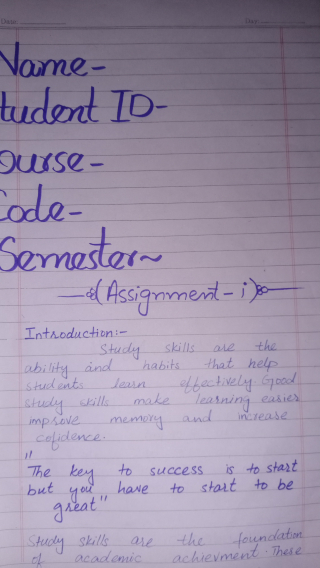 Name-
tudent ID-
ourse-
Code-
Semester~
(Assignment - i)
Introduction:-
Study skills are the
ability and habits that help
students learn effectively Good
study skills make learning easier
improve memory and increase
cofidence.
"
The key to success is to start
but you have to start to be
great"
Study skills are the foundation
of academic achievment. These